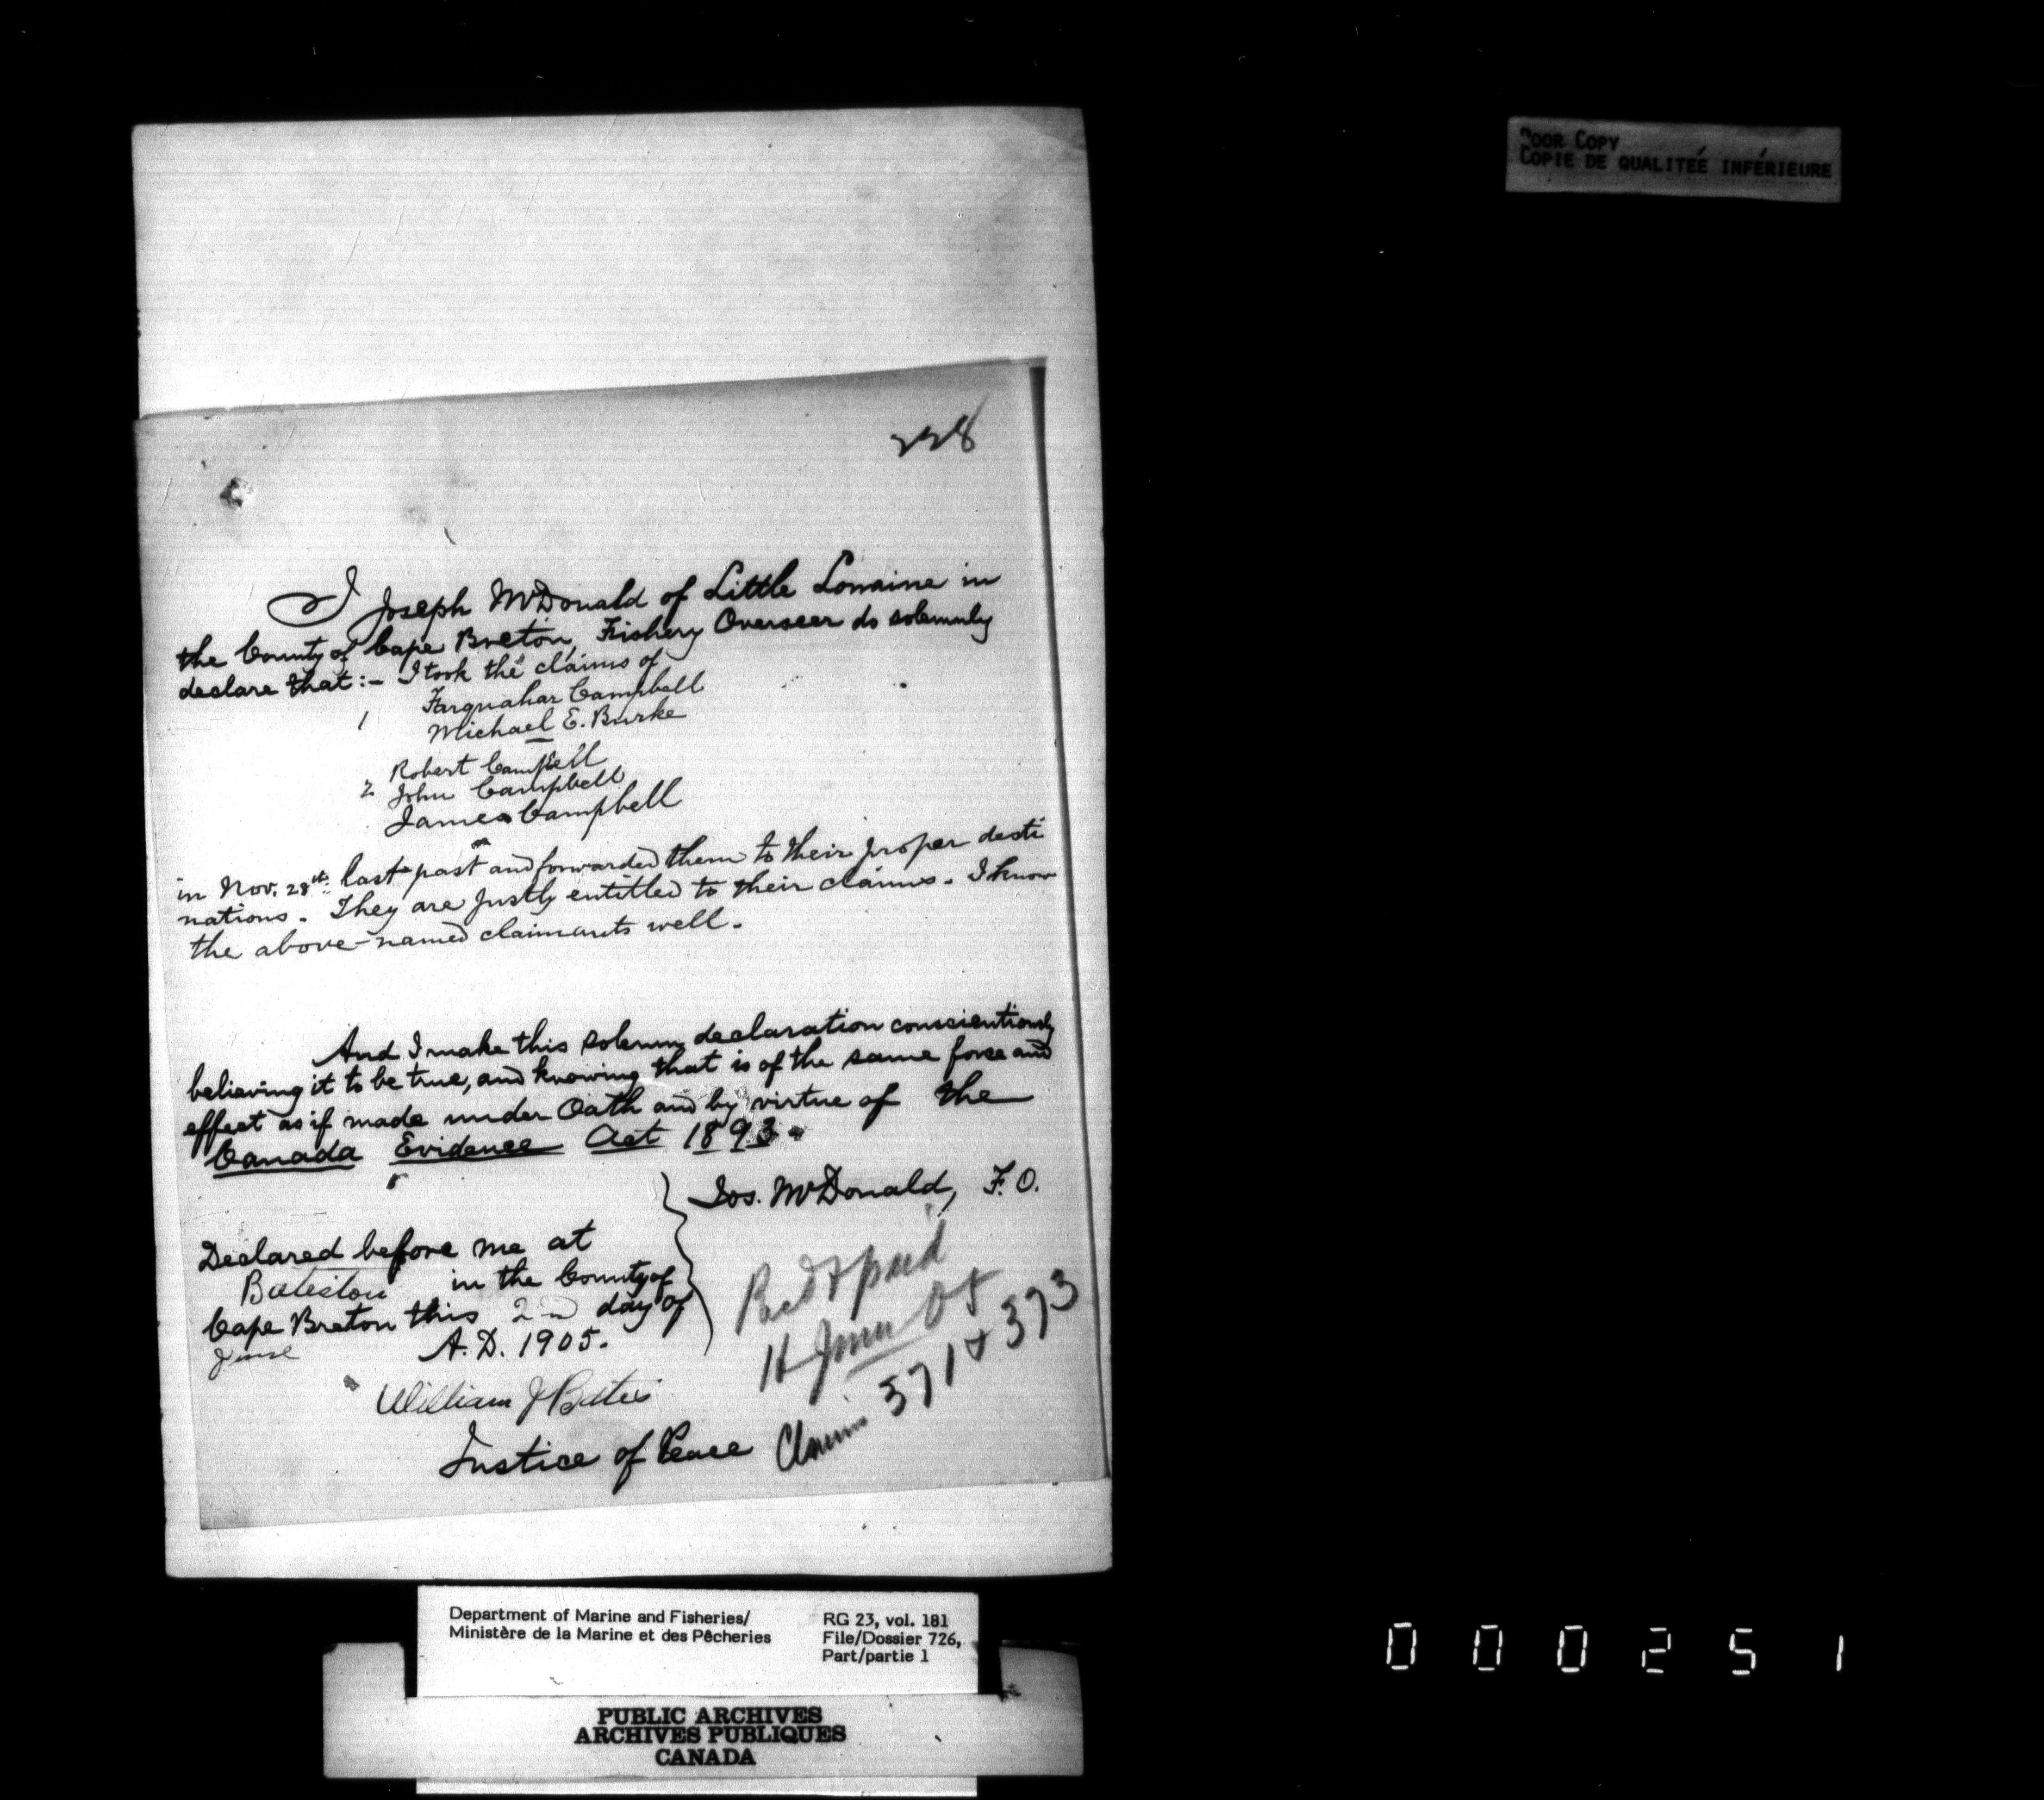 POOR COPY
COPIE DE QUALITEÉ INFÉRIEURE
228
I Joseph McDonald of Little Lorraine in
the County of Cape Breton, Fishery Overseer do solemnly
declare that :- I took the claims of
1 Farquahar Campbell
Michael E. Burke
Robert Campbell
2 John Campbell
James Campbell
in Nov. 28th: last past and forwarded them to their proper desti
nations. They are justly entitled to their claims. I know
the above-named claimants well.
And I make this solemn declaration conscientiously
believing it to be true, and knowing that is of the same force and
effect as if made under Oath and by virtue of the
Canada Evidence Act 1893.
Jos. McDonald, F.O.
Declared before me at
Bateston in the County of
Cape Breton this 2nd day of
June A.D. 1905.
William J Bates
Justice of Peace
Recd & paid
June 05
Claims 371 & 373
Department of Marine and Fisheries/
Ministère de la Marine et des Pêcheries
RG 23, vol. 181
File/Dossier 726,
Part/partie 1
PUBLIC ARCHIVES
ARCHIVES PUBLIQUES
CANADA
000251